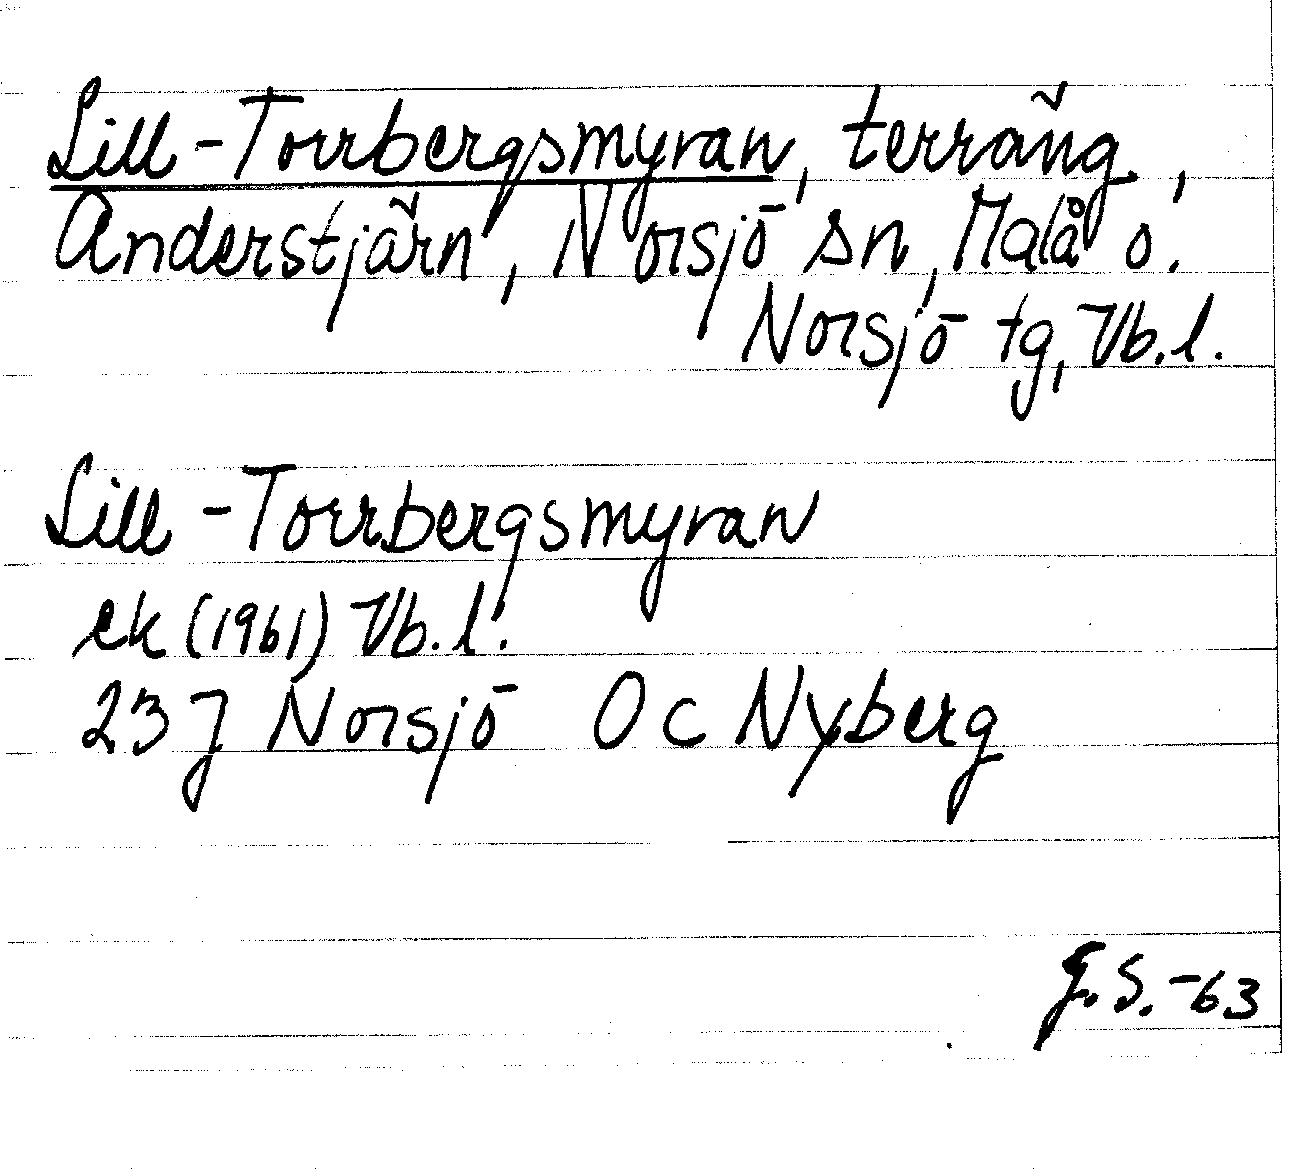 Lill-Torrbergsmyran, terräng,
Anderstjärn, Norsjö sn, Malå o.
Norsjö tg, Vb.l.
Lill-Torrbergsmyran
ek (1961) Vb.l.
23J Norsjö Oc Nyberg
G.S.-63